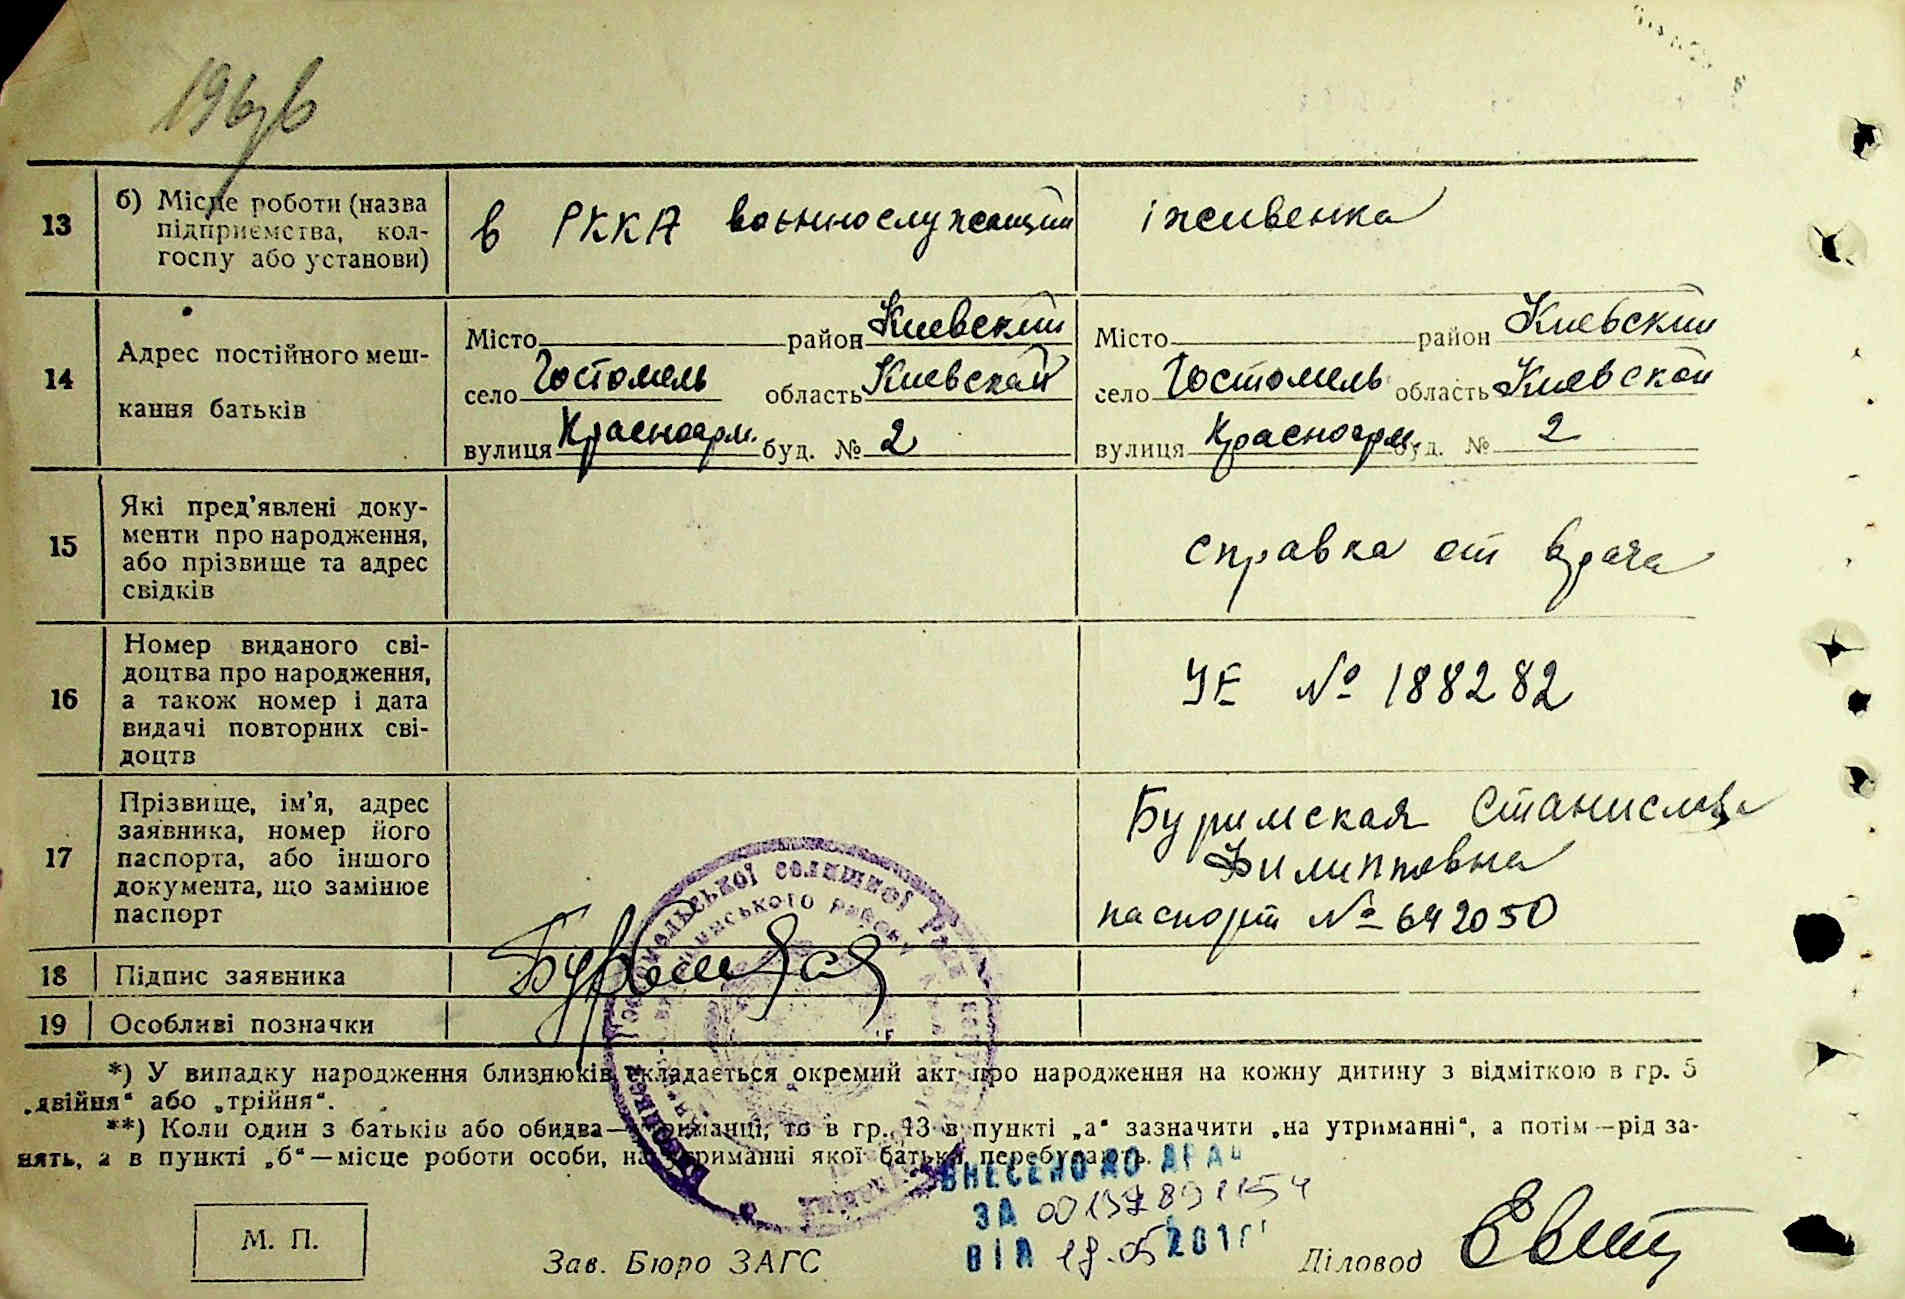 13
б) Місце роботи (назва
підприємства, кол-
госпу або установи)
в РККА военнослужащий
іживенка
14
Адрес постійного меш-
кання батьків
Місто район Киевский
село Гостомель область Киевской
вулиця Красноарм. буд. № 2
Місто район Киевский
село Гостомель область Киевской
вулиця Красноарм. буд. № 2
15
Які пред'явлені доку-
менти про народження,
або прізвище та адрес
свідків
справка от врача
16
Номер виданого сві-
доцтва про народження,
а також номер і дата
видачі повторних сві-
доцтв
УЕ № 188282
17
Прізвище, ім'я, адрес
заявника, номер його
паспорта, або іншого
документа, що замінює
паспорт
Буримская Станислава
Филипповна
паспорт № 642050
18
Підпис заявника
19
Особливі позначки
*) У випадку народження близнюків складається окремий акт про народження на кожну дитину з відміткою в гр. 5
„двійня“ або „трійня“.
**) Коли один з батьків або обидва—утриманці, то в гр. 13 в пункті „а“ зазначити „на утриманні“, а потім—рід за-
нять, а в пункті „б“—місце роботи особи, на утриманні якої батьки перебувають.
ВНЕСЕНО ДО ДРАЦ
ЗА
ВІД
М. П.
Зав. Бюро ЗАГС
Діловод